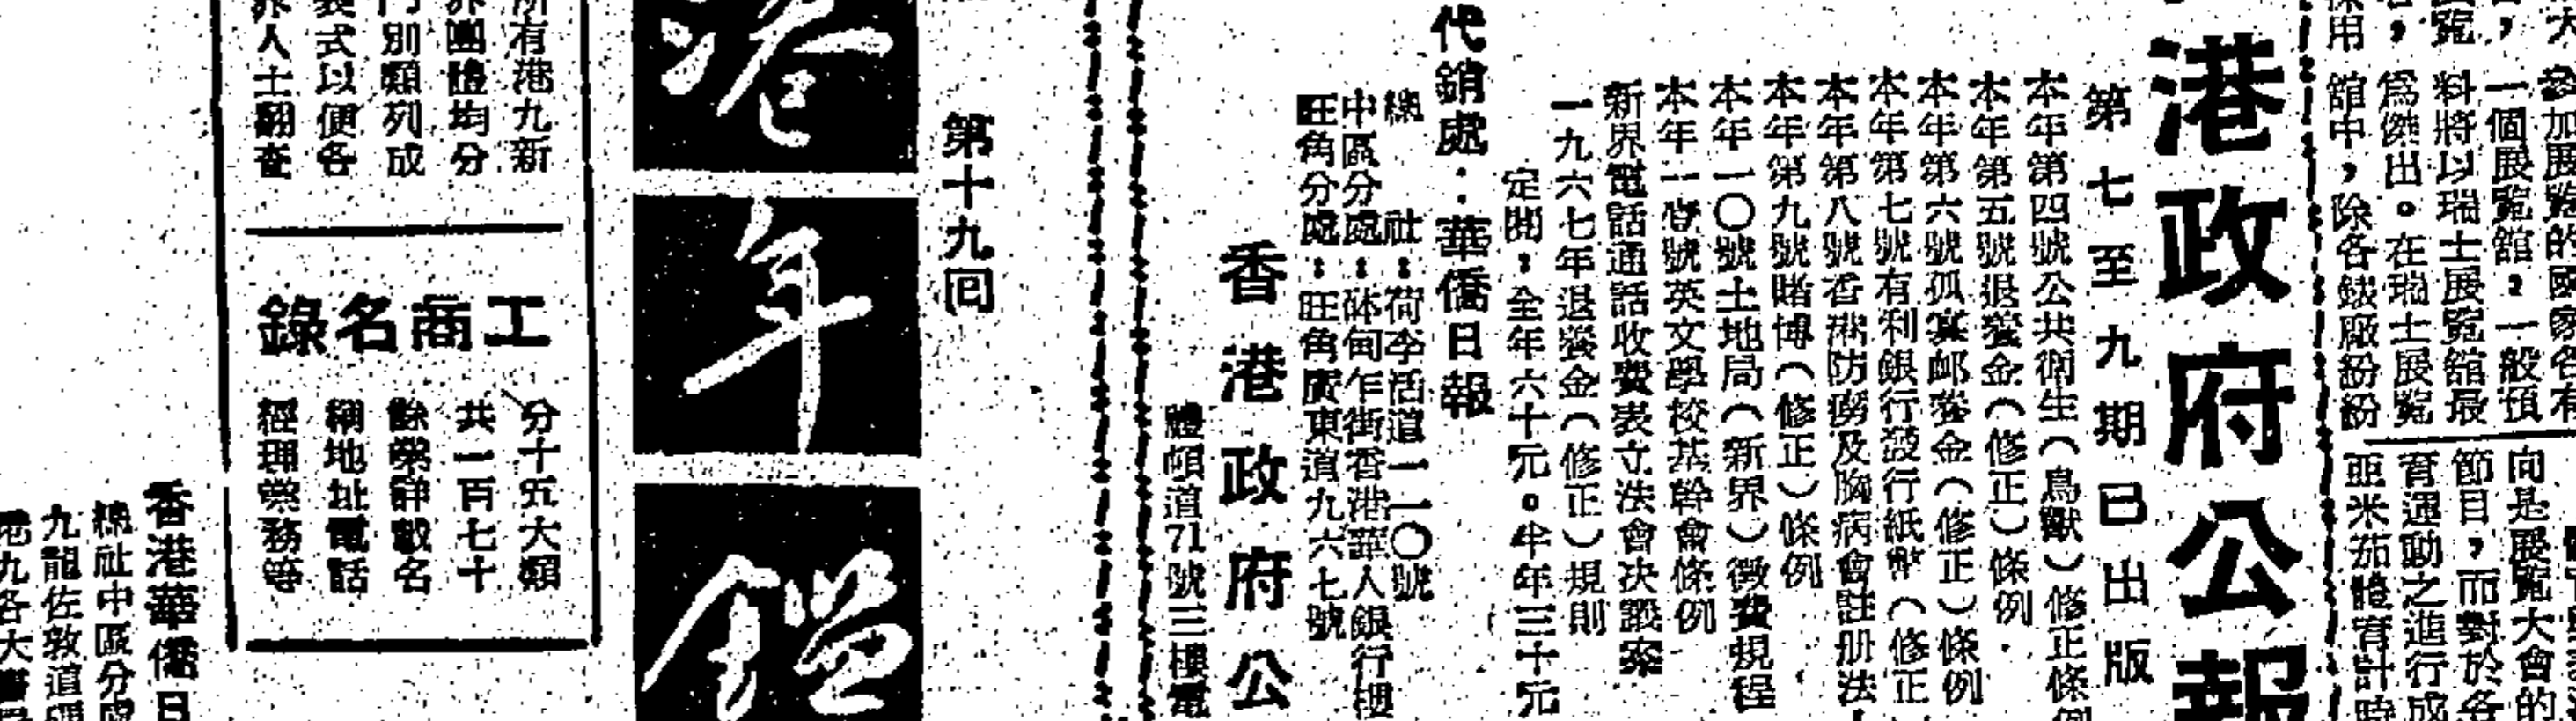 參加展覽的國家各有
一個展覽館，一般預
料將以瑞士展覽館最
為傑出。在瑞士展覽
館中，除各錶廠紛紛
向是展覽大會的
節目，而對於各
育運動之進行成
亜米茄體育計時
港政府公報
第七至九期已出版
本年第四號公共衛生（鳥獸）修正條例
本年第五號退養金（修正）條例
本年第六號孤寡邮養金（修正）條例
本年第七號有利銀行發行紙幣（修正
本年第八號香港防癆及胸病會註册法
本年第九號賭博（修正）條例
本年一〇號土地局（新界）徵費規程
本年一壹號英文學校基幹會條例
新界電話通話收費表立法會决議案
一九六七年退養金（修正）規則
定閱，全年六十元。半年三十元
代銷處：華僑日報
總社：荷李活道一一〇號
中區分處：砵甸乍街香港華人銀行樓
旺角分處：旺角廣東道九六七號
香港政府公
體頓道71號三樓電
第十九回
港年鑑
所有港九新
界團體均分
門別類列成
表式以便各
界人士翻查
工商名錄
分十五大類
共一百七十
餘業詳載名
稱地址電話
經理業務等
香港華僑日
總社中區分處
九龍佐敦道
港九各大書局